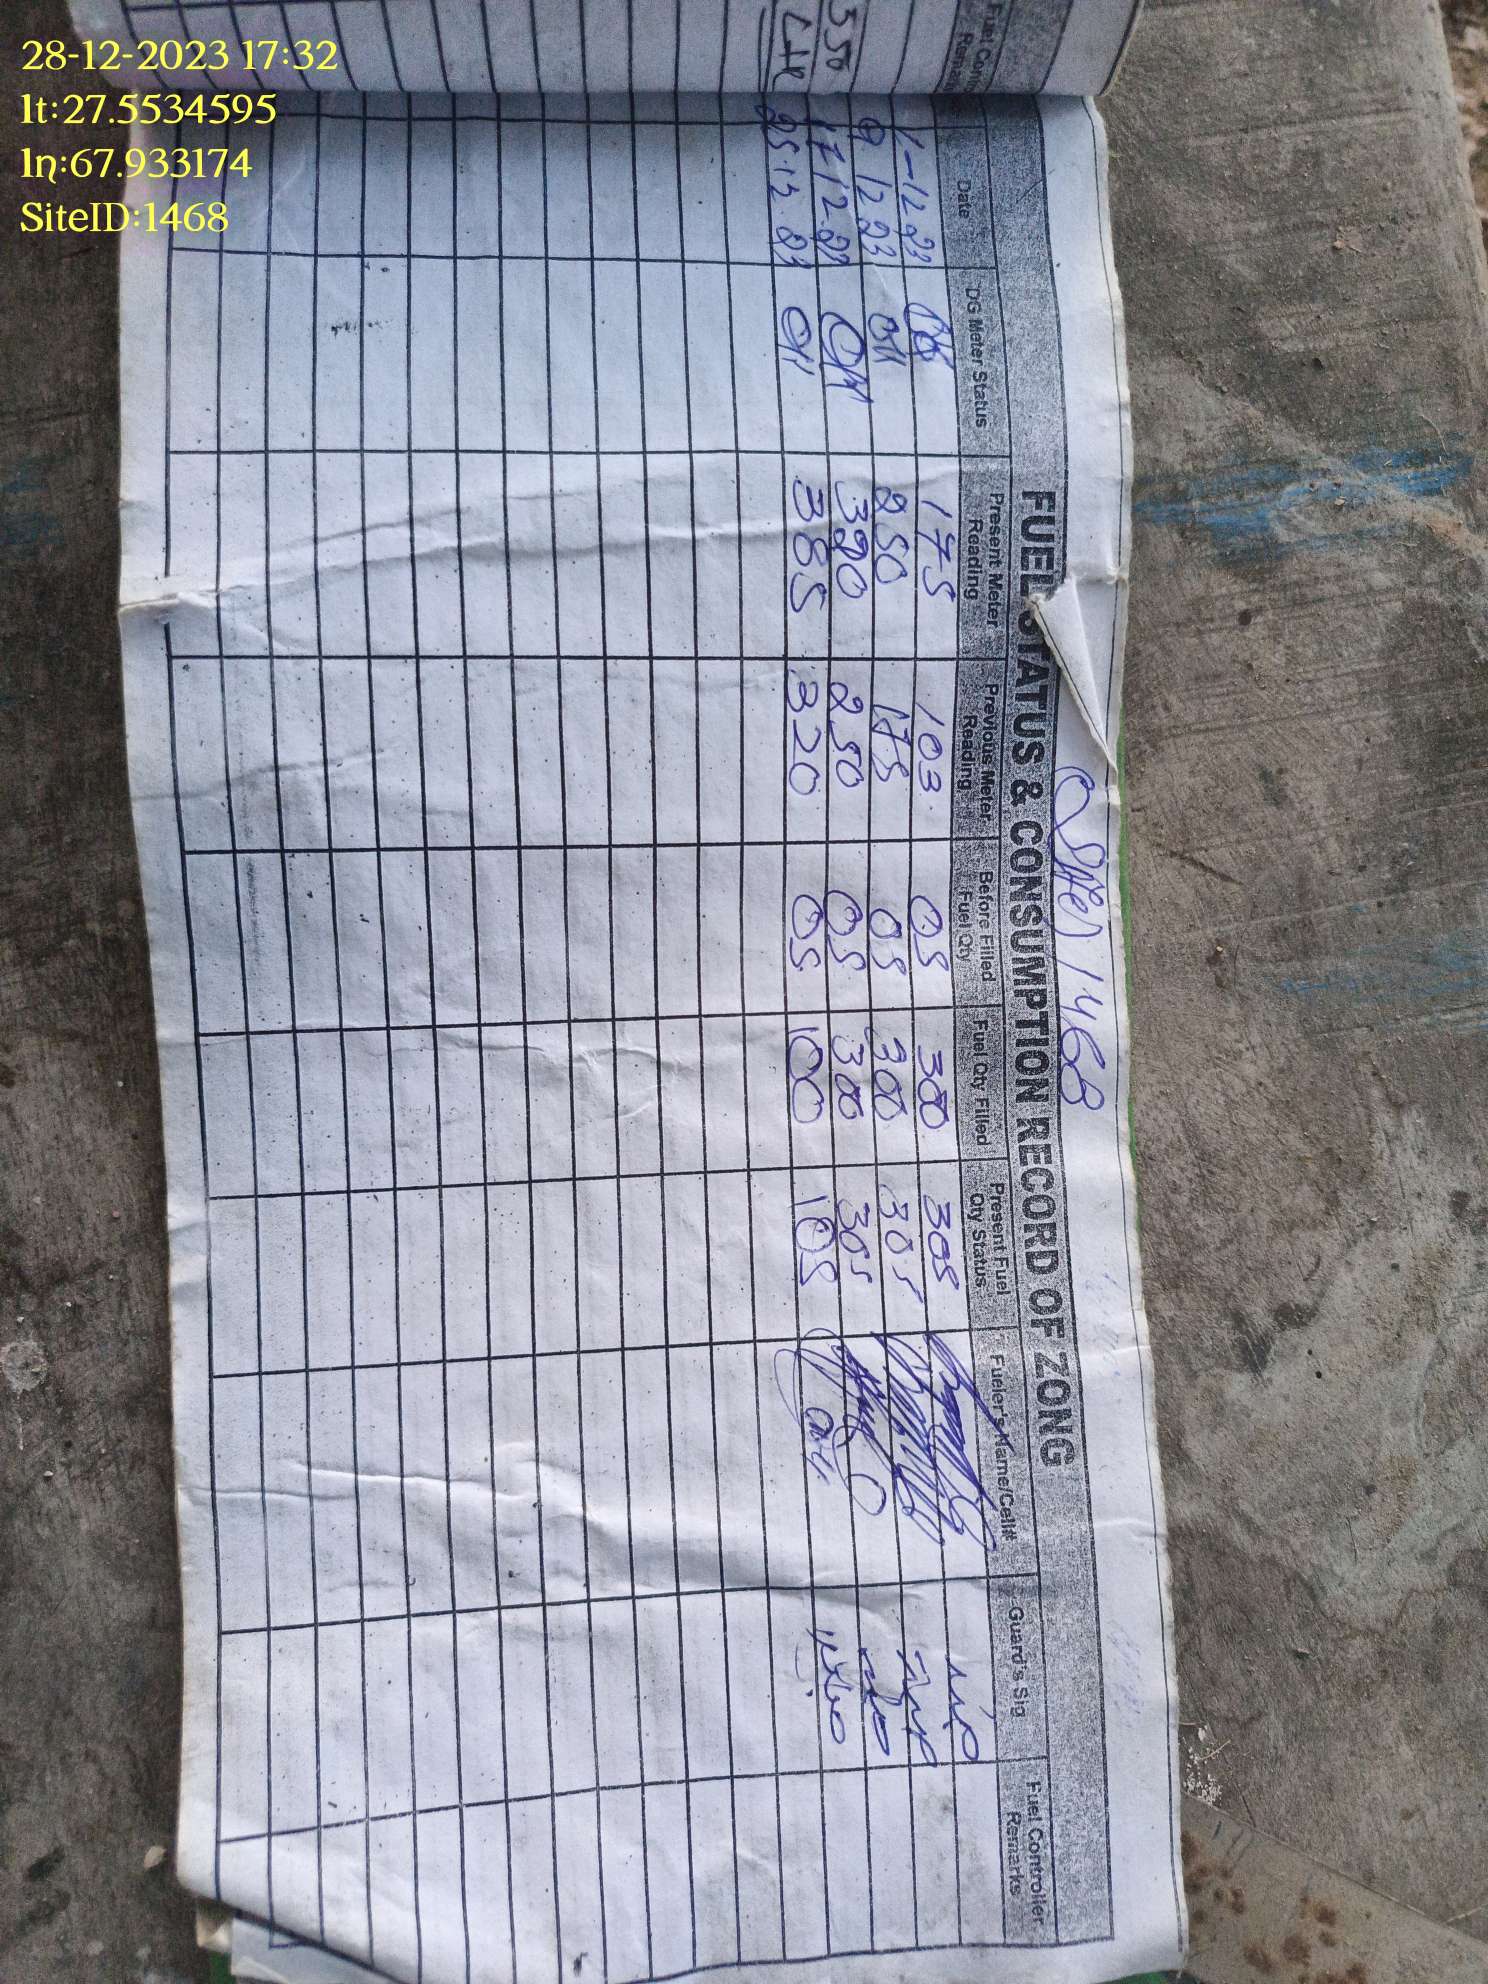 28-12-2023 17:32
lt:27.5534595
ln:67.933174
SiteID:1468
550
Site) 1468
FUEL STATUS & CONSUMPTION RECORD OF ZONG
Date DG Meter Status Present Meter Reading Previous Meter Reading Before Filled Fuel Qty Fuel Qty Filled Present Fuel Qty Status Fueler's Name/Cell# Guard's Sig Fuel Controller Remarks
1-12-23 175 103 05 300 305
9 12 23 250 175 05 300 305
17 12-23 320 250 05 300 305
25.12.23 385 320 05 100 105